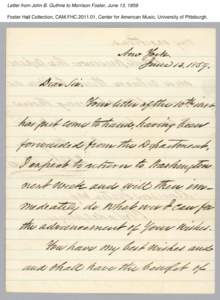 Letter from John B. Guthrie to Morrison Foster, June 13, 1859
Foster Hall Collection, CAM.FHC.2011.01, Center for American Music, University of Pittsburgh.
New York
June 13, 1859.
Dear Sir.
Your letter of the 10th inst
has just come to hand, having been
forwarded from this Department.
I expect to return to Washington
next week and will then im-
mediately do what ever I can for
the advancement of Your Wishes.
You have my best wishes and
and shall have the benefit of